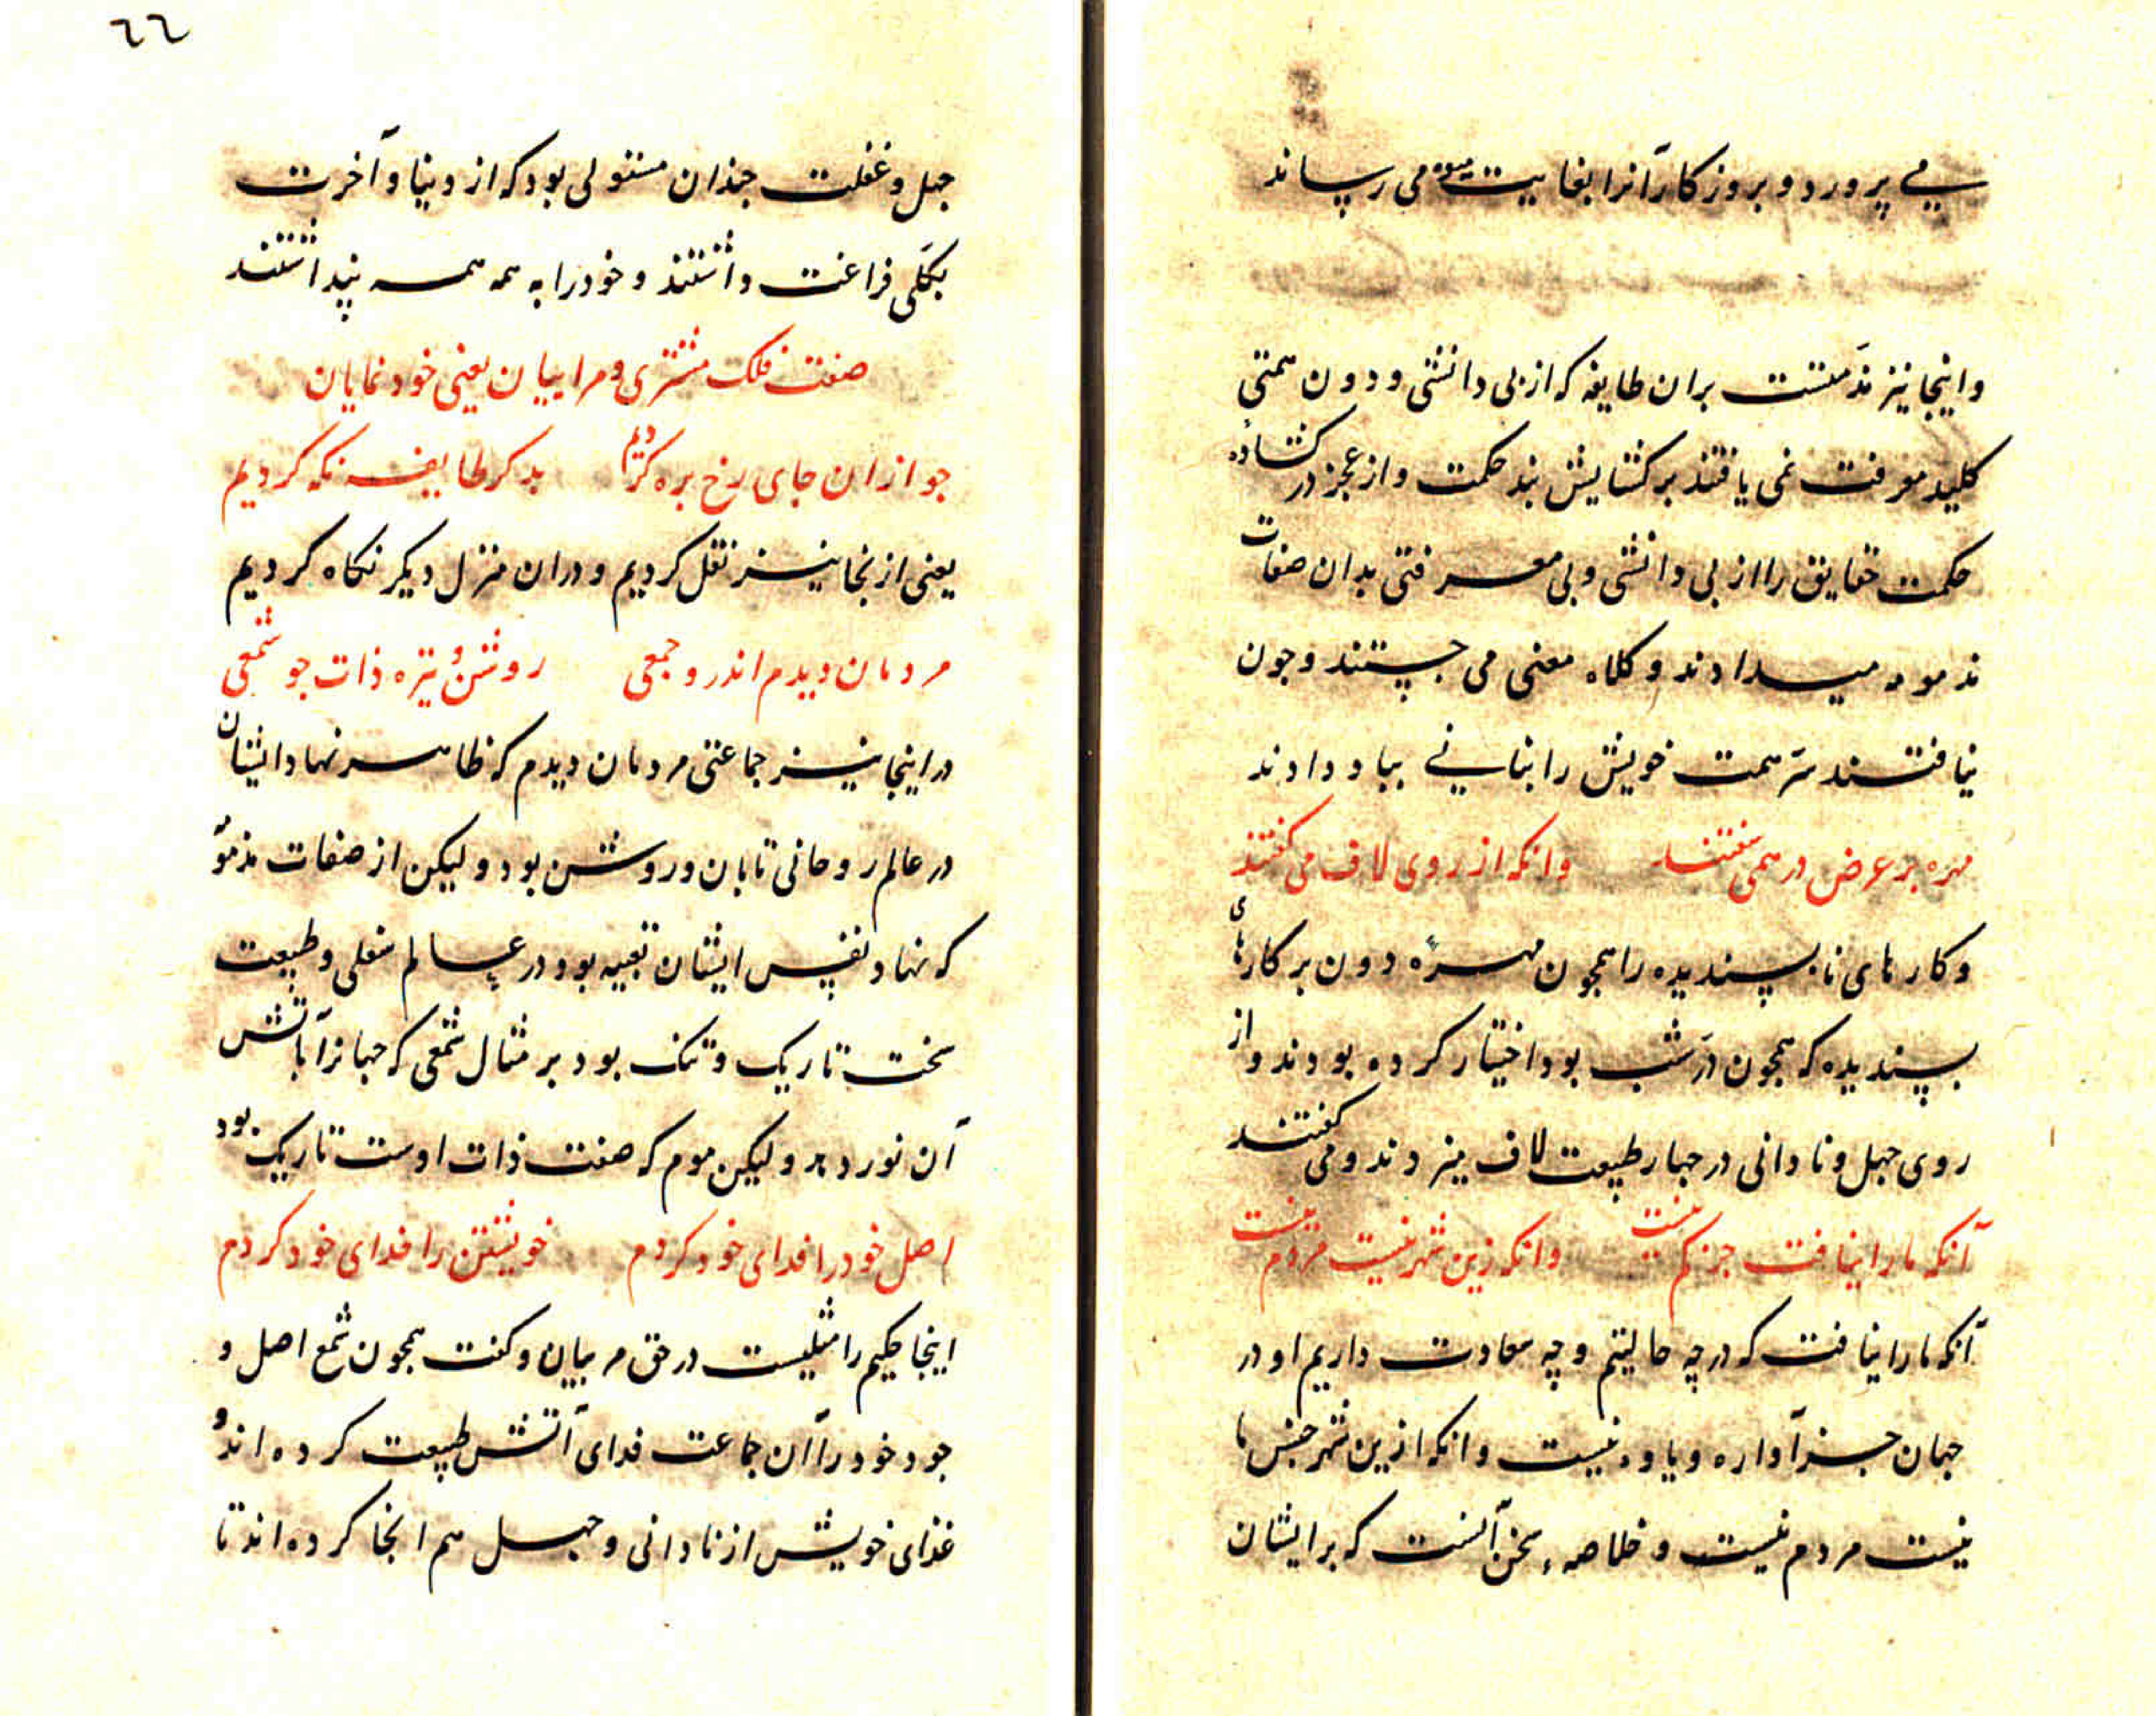 می پرورد و بروزکار آنرا بغایت میوه می رساند
واینجا نیز مذمتست بران طایفه که از بی دانشی و دون همتی
کلید معرفت نمی یافتند بر کشایش بند حکمت و از عجز در کشاده
حکمت حقایق را از بی دانشی و بی معرفتی بدان صفات
مذمومه میدادند و کلاه معنی می جستند و جون
نیافتند سر همت خویش را بنانی بباد دادند
مهره بر عرض در همی سفتند وانکه از روی لاف می کفتند
و کارهای ناپسندیده را همجون مهره دون بر کارهای
پسندیده که همجون در شب بود اختیار کرده بودند و از
روی جهل و نادانی در جهار طبیعت لاف میزدند و می کفتند
آنکه ما را نیافت جز کم نیست وانکه زین شهر نیست مردم نیست
آنکه ما را نیافت که در چه حالیتم و چه سعادت داریم او در
جهان جز آواره و یاوه نیست و انکه ازین شهر جنس ما
نیست مردم نیست و خلاصهٔ سخن آنست که بر ایشان
٦٦
جهل و غفلت جندان مستولی بود که از دینا و آخرت
بکلی فراغت داشتند و خود را به همه همه پنداشتند
صفت فلک مشتری و مراییان یعنی خود نمایان
جو ازان جای رخ بره کردیم بدکر طایفه نکه کردیم
یعنی از نجا نیز نقل کردیم و دران منزل دیکر نکاه کردیم
مردمان دیدم اندرو جمعی روشن و تیره ذات جو شمعی
دراینجا نیز جماعتی مردمان دیدم که ظاهر نهاد ایشان
در عالم روحانی تابان و روشن بود و لیکن از صفات مذمو
که نهاد نفس ایشان تعبیه بود در عالم سفلی و طبیعت
سخت تاریک و تنک بود بر مثال شمعی که جهانرا بآتش
آن نور دهد و لیکن موم که صفت ذات اوست تاریک بود
اصل خود را فدای خود کردم خویشتن را فدای خود کردم
اینجا حکیم را مثلیست در حق مربیان و کفت همجون شمع اصل و
جود خود را آن جماعت فدای آتش طبیعت کرده اند و
غذای خویش از نادانی و جهل هم انجا کرده اند تا